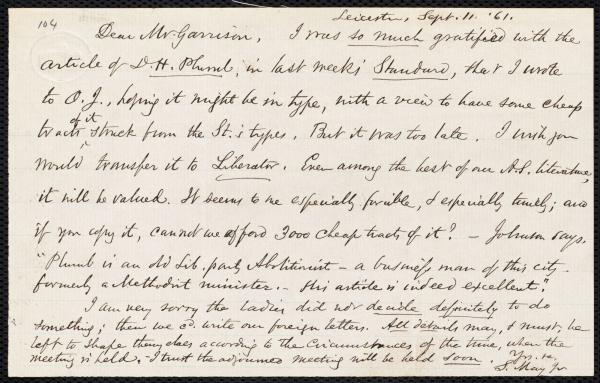 104
Leicester, Sept. 11. '61.
Dear Mr Garrison, I was so much gratified with the
article of D. H. Plumb, in last week's Standard, that I wrote
to O. J., hoping it might be in type, with a view to have some cheap
tracts of it struck from the St.'s types. But it was too late. I wish you
would transfer it to Liberator. Even among the best of our A.S. literature,
it will be valued. It seems to me especially forcible, & especially timely; and
if you copy it, cannot we afford 3000 cheap tracts of it? - Johnson says,
"Plumb is an old Lib. party Abolitionist - a business man of this city -
formerly a Methodist minister. - His article is indeed excellent."
I am very sorry the ladies did not decide definitely to do
something; then we cd. write our foreign letters. All details may, & must, be
left to shape themselves according to the circumstances of the time, when the
meeting is held. I trust the adjourned meeting will be held soon. Yrs. ev,
S. May Jr